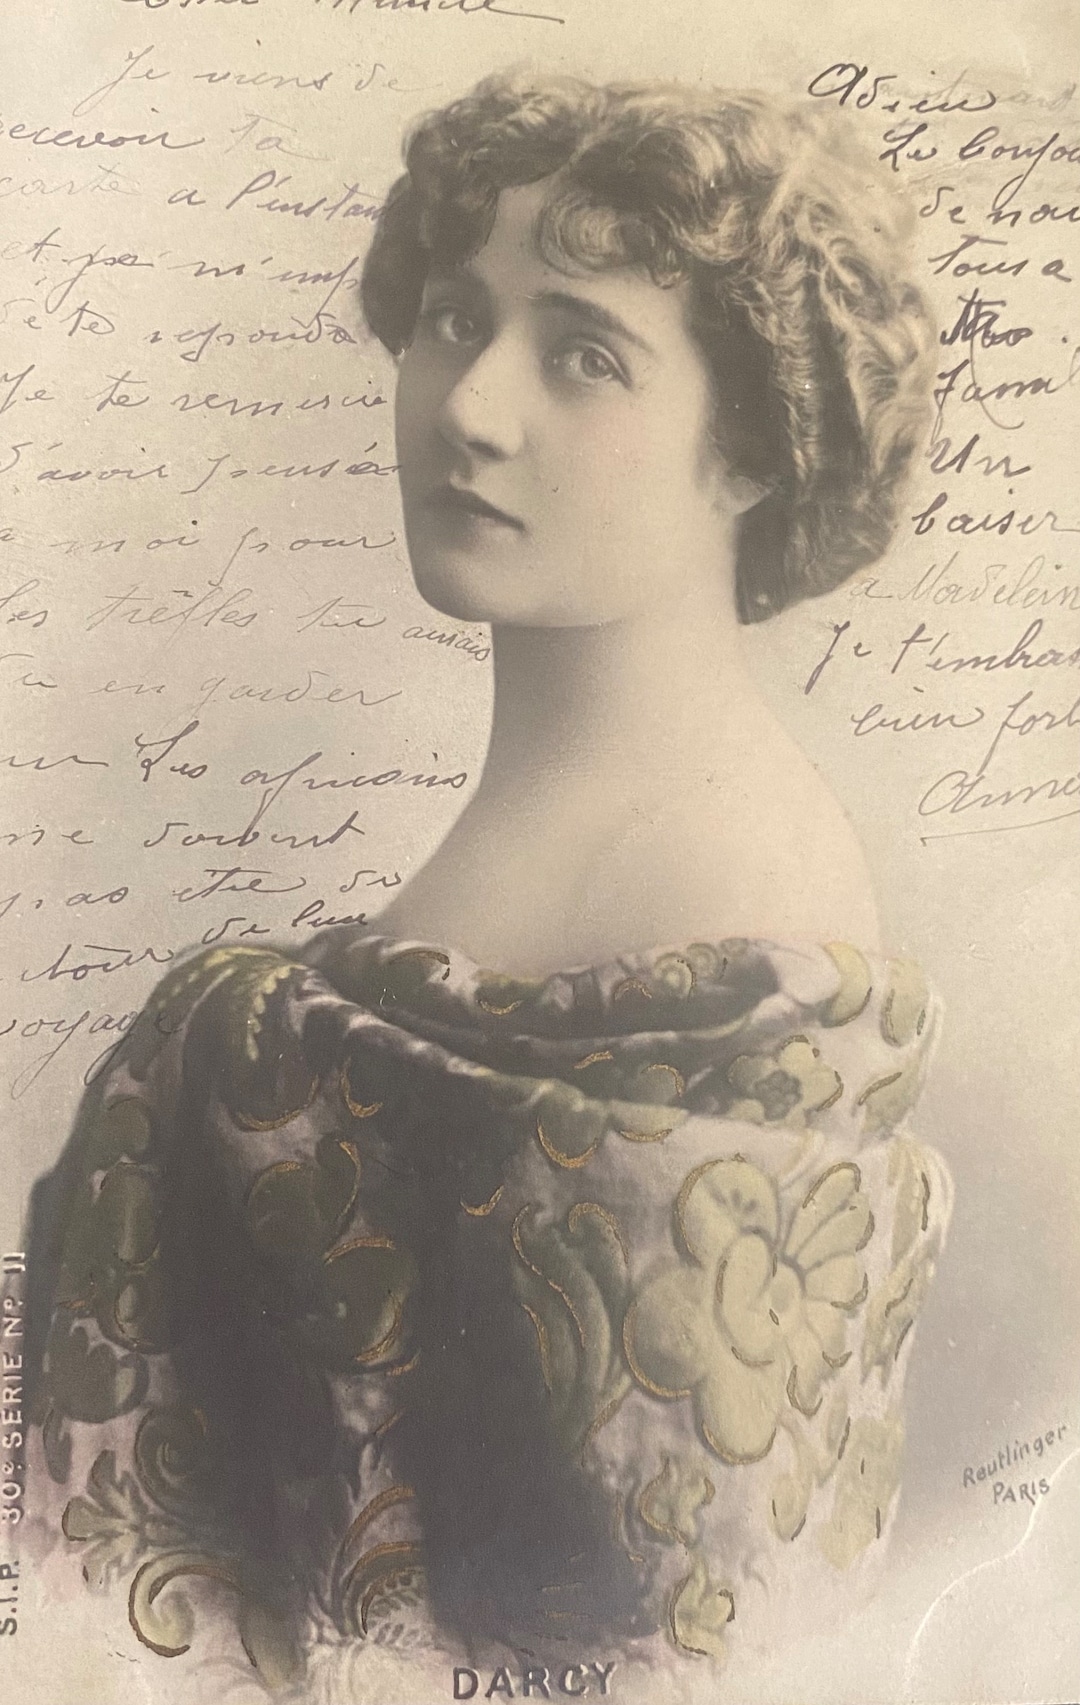 Je viens de
recevoir ta
carte a l'instant
et je m'emp
de te reponde
Je te remercie
d'avoir pensé a
a moi pour
les trêfles tu aurais
du en garder
un Les africains
ne doivent
pas etre de
retour de leur
voyage
Adieu
Le bonjou
de nou
tous a
ta
famil
Un
baiser
a Madelein
Je t'embras
bien fort
Anne
S.I.P. 30e SERIE No. 11
Reutlinger
PARIS
DARCY